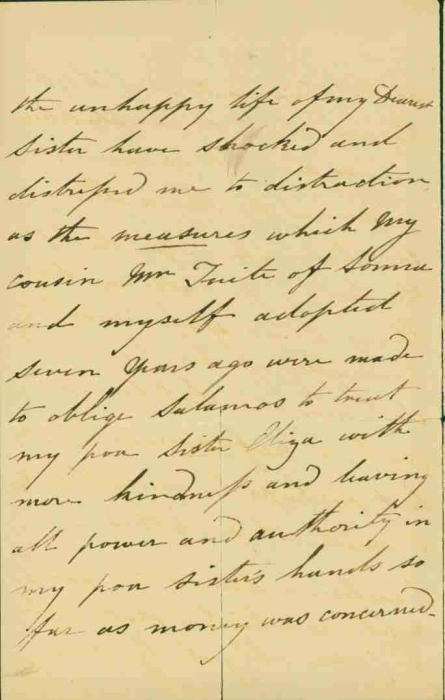 the unhappy life of my Dearest
Sister have shocked and
distressed me to distraction
as the measures which My
cousin Mr Tuite of Sonna
and myself adopted
seven years ago were made
to oblige Salamos to treat
my poor Sister Eliza with
more kindness and leaving
all power and authority in
my poor sister's hands so
far as money was concerned.